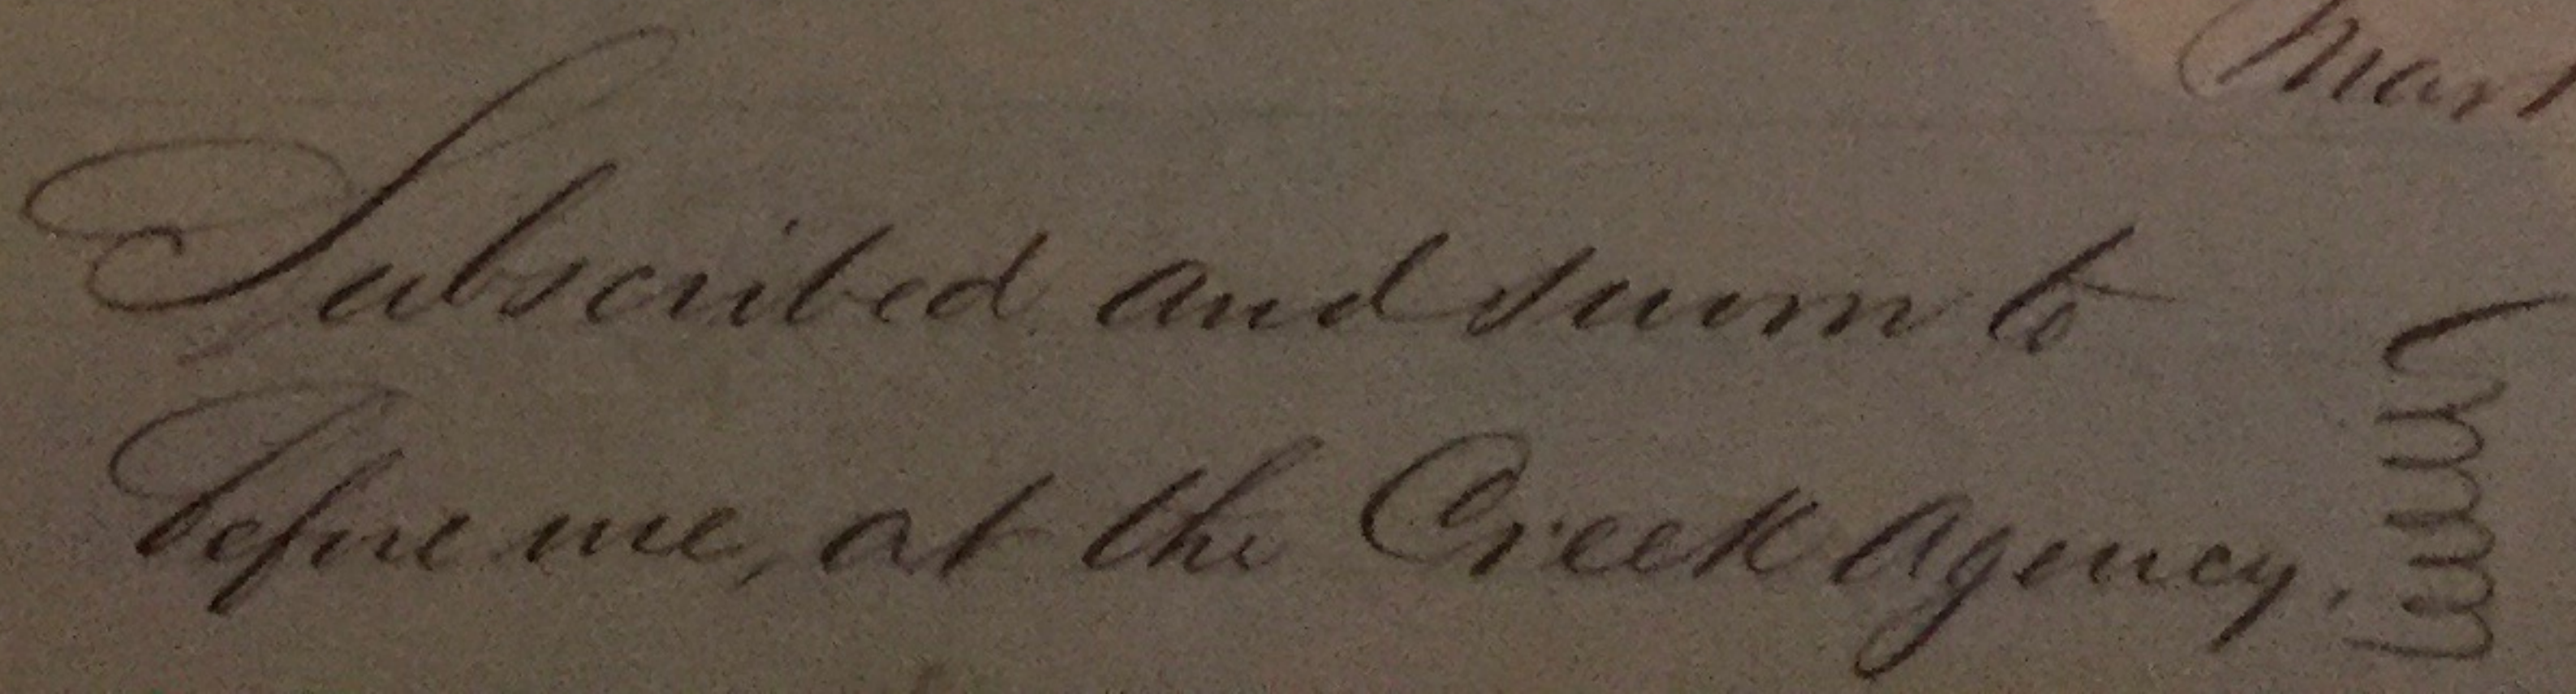 mark
Subscribed and sworn to
before me, at the Creek Agency.